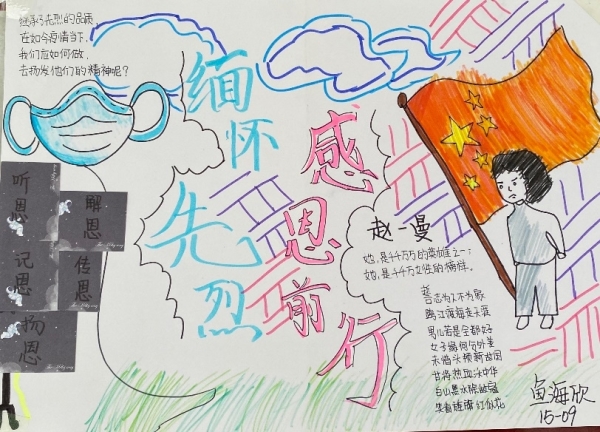 继承了先烈的品质，
在如今疫情当下，
我们应如何做，
去扬发他们的精神呢？
缅怀先烈
感恩前行
听恩
解恩
记恩
传恩
扬恩
赵一曼
她，是千千万万的英雄之一；
她，是千千万万女性的榜样。
誓志为人不为家
跨江渡海走天涯
男儿若是全都好
女子缘何分外差
未惜头颅新故国
甘将热血沃中华
白山黑水除敌寇
笑看旌旗红似花
鱼海欣
15-09